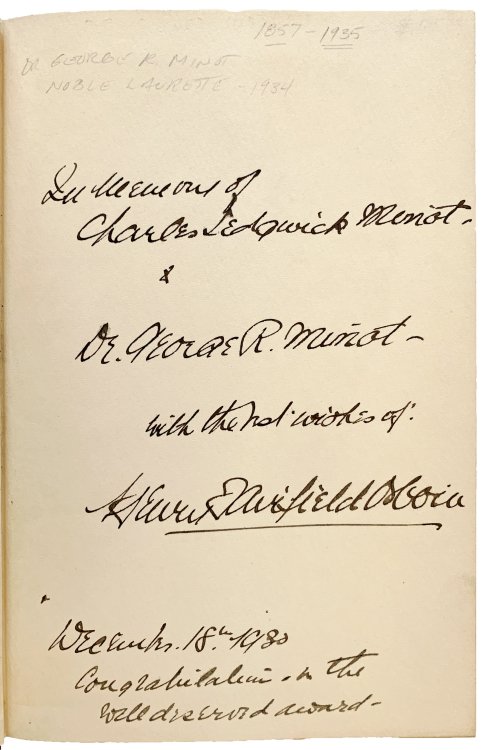 1857 - 1935
DR GEORGE R. MINOT
NOBLE LAURETTE - 1934
In Memory of
Charles Sedgwick Minot -
&
Dr. George R. Minot -
with the best wishes of:
Henry Fairfield Osborn
December. 18th 1930
Congratulation on the
well deserved award -